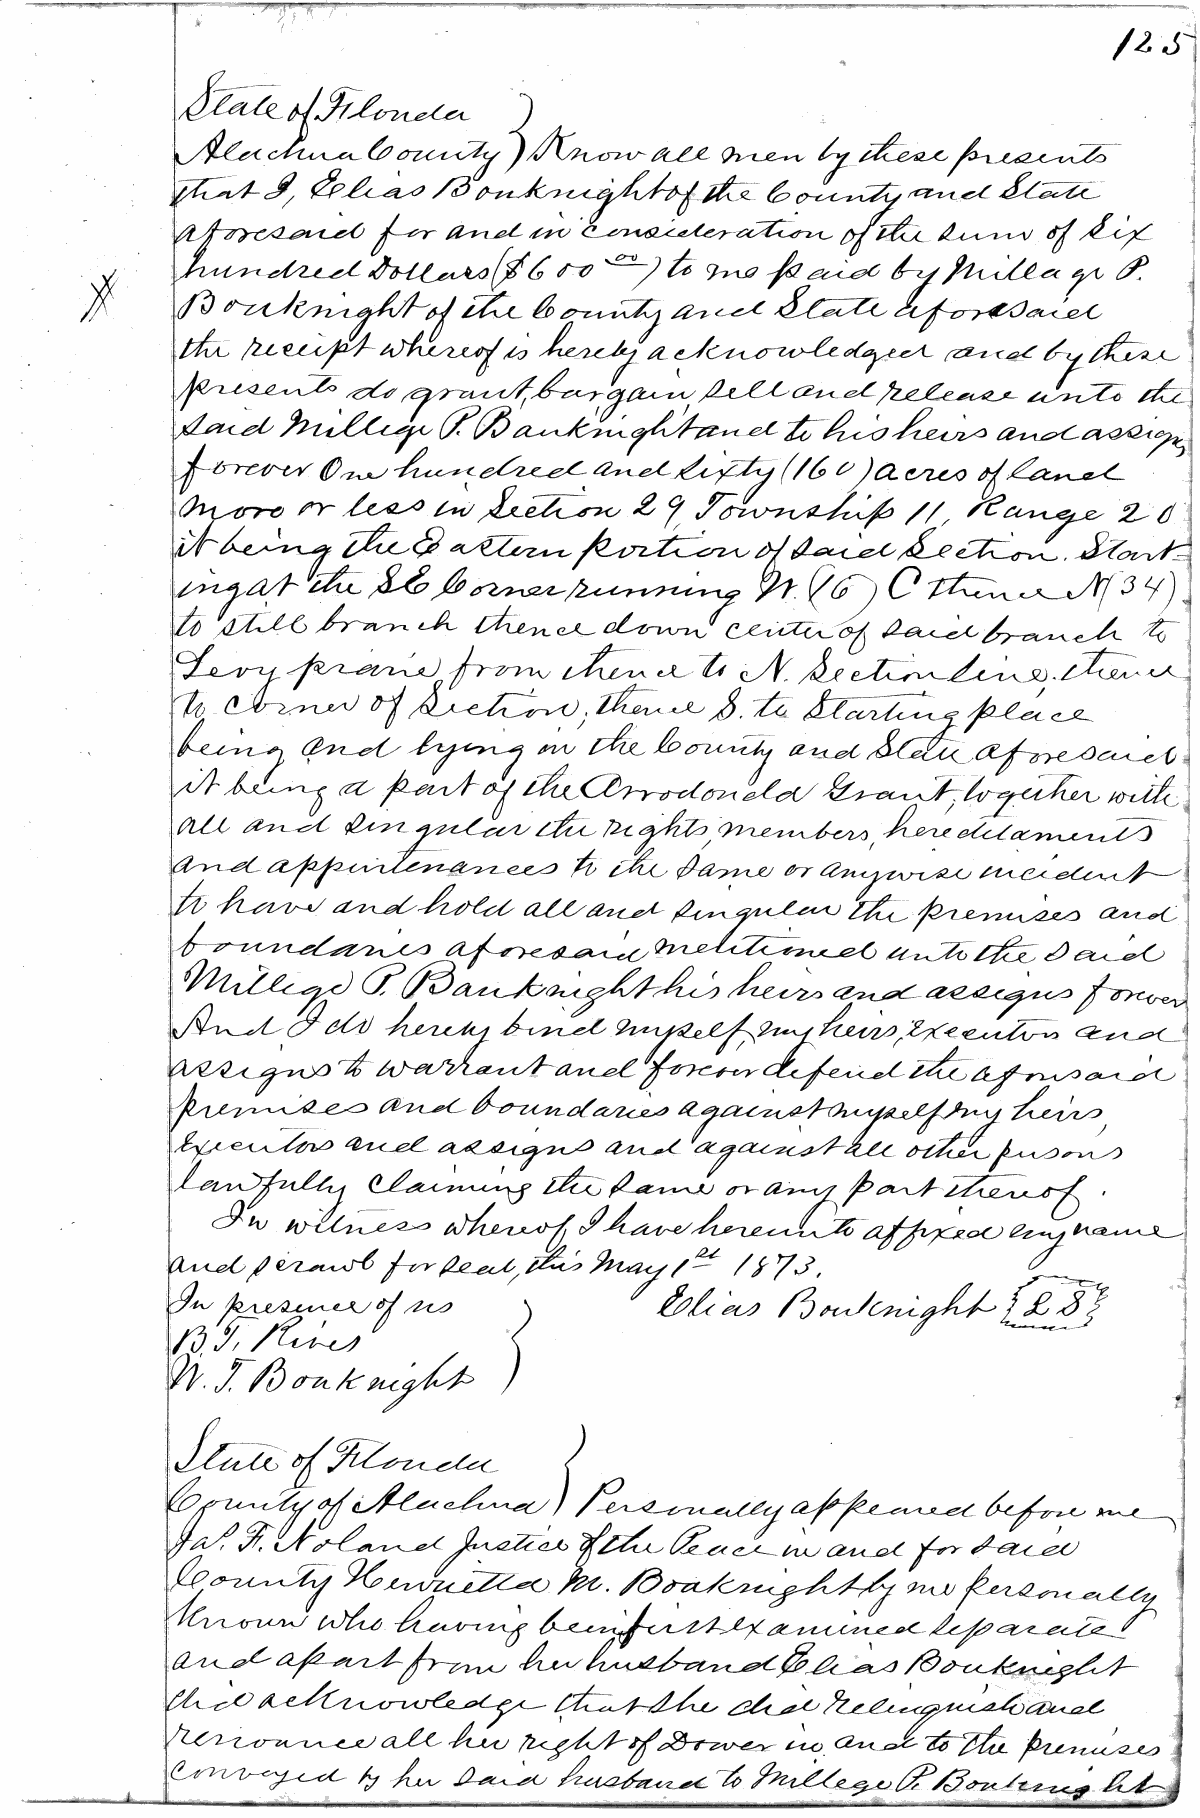 125
State of Florida
Alachua County) Know all men by these presents
that I, Elias Bouknight of the County and State
aforesaid for and in consideration of the sum of six
hundred Dollars ($600.00) to me paid by Millage P.
Bouknight of the County and State aforesaid
the receipt whereof is hereby acknowledged and by these
presents do grant, bargain, sell and release unto the
said Millege P. Bauknight and to his heirs and assigns
forever One hundred and sixty (160) acres of land
more or less in Section 29, Township 11, Range 20
it being the Eastern portion of said Section. Start-
ing at the SE Corner running W. (16) C thence N (34)
to still branch thence down center of said branch to
Levy prarie, from thence to N. Section line, thence
to corner of Section; thence S. to Starting place
being and lying in the County and State aforesaid
it being a part of the Arrodonda Grant, together with
all and singular the rights, members, hereditaments
and appurtenances to the same or anywise incident
to have and hold all and singular the premises and
boundaries aforesaid mentioned unto the said
Millege P. Bauknight his heirs and assigns forever
And I do hereby bind myself, my heirs, executors and
assigns to warrant and forever defend the aforesaid
premises and boundaries against myself my heirs,
executors and assigns and against all other persons
lawfully claiming the same or any part thereof.
In witness whereof, I have hereunto affixed my name
and scrawl for seal, this May 1st 1873.
In presence of us Elias Bouknight {LS}
B. T. Rives
W. T. Bouknight
State of Florida
County of Alachua) Personally appeared before me
Jas. F. Noland Justice of the Peace in and for said
County Henrietta M. Bouknight by me personally
known who having been first examined separate
and apart from her husband Elias Bouknight
did acknowledge that she did relinquish and
renounce all her right of Dower in and to the premises
conveyed by her said husband to Millege P. Bouknight